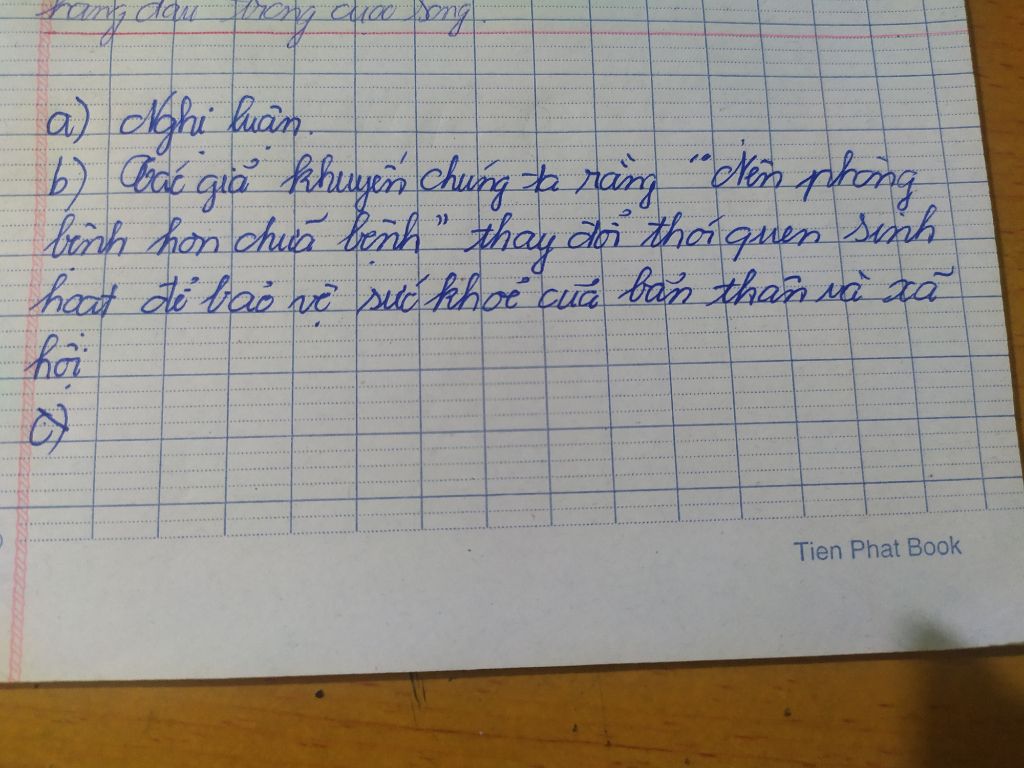 hàng đầu trong cuộc sống.
a) Nghị luận.
b) Tác giả khuyến chúng ta rằng "Nên phòng
bệnh hơn chữa bệnh" thay đổi thói quen sinh
hoạt để bảo vệ sức khoẻ của bản thân và xã
hội
c)
Tien Phat Book